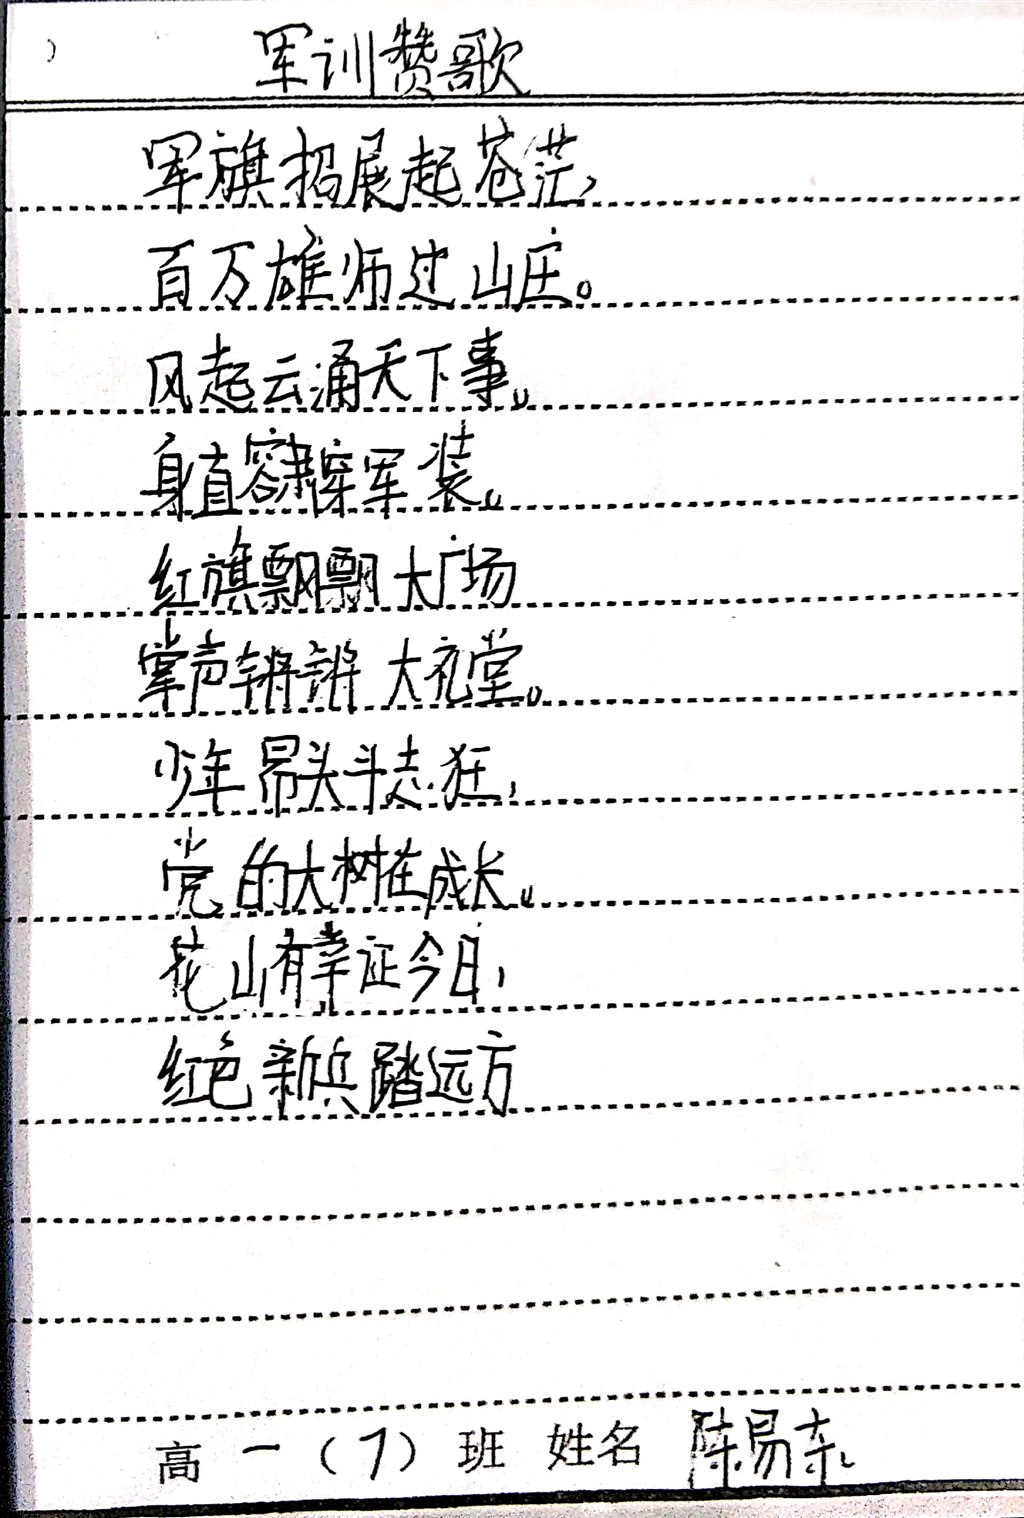 军训赞歌
军旗招展起苍茫,
百万雄师过山庄。
风起云涌天下事。
身直容肃穿军装。
红旗飘飘大广场
掌声锵锵大礼堂。
少年昂头斗志狂,
党的大树在成长。
花山有幸证今日,
红色新兵踏远方
高一(7)班 姓名 陈易东